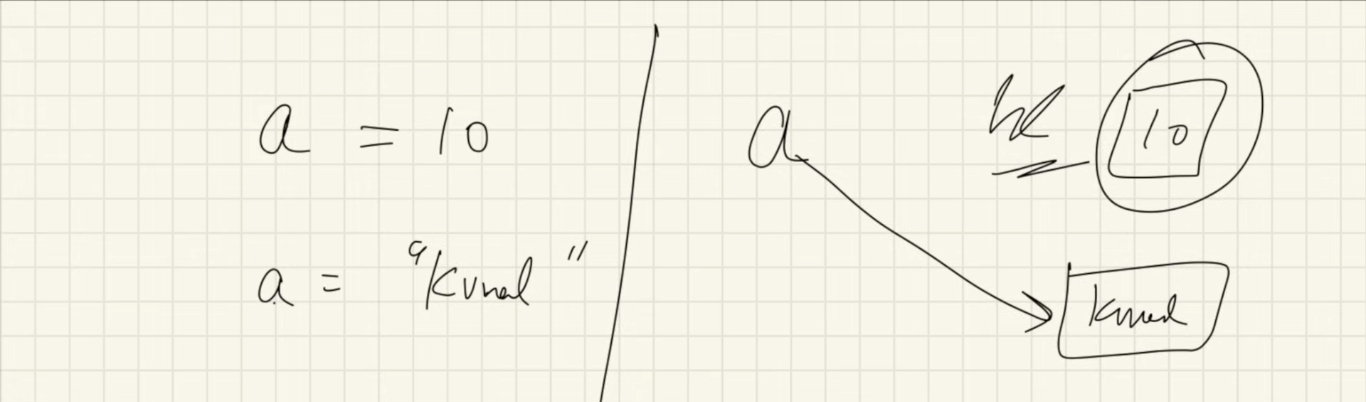 a = 10
a = "Kunal"
a
10
Kunal